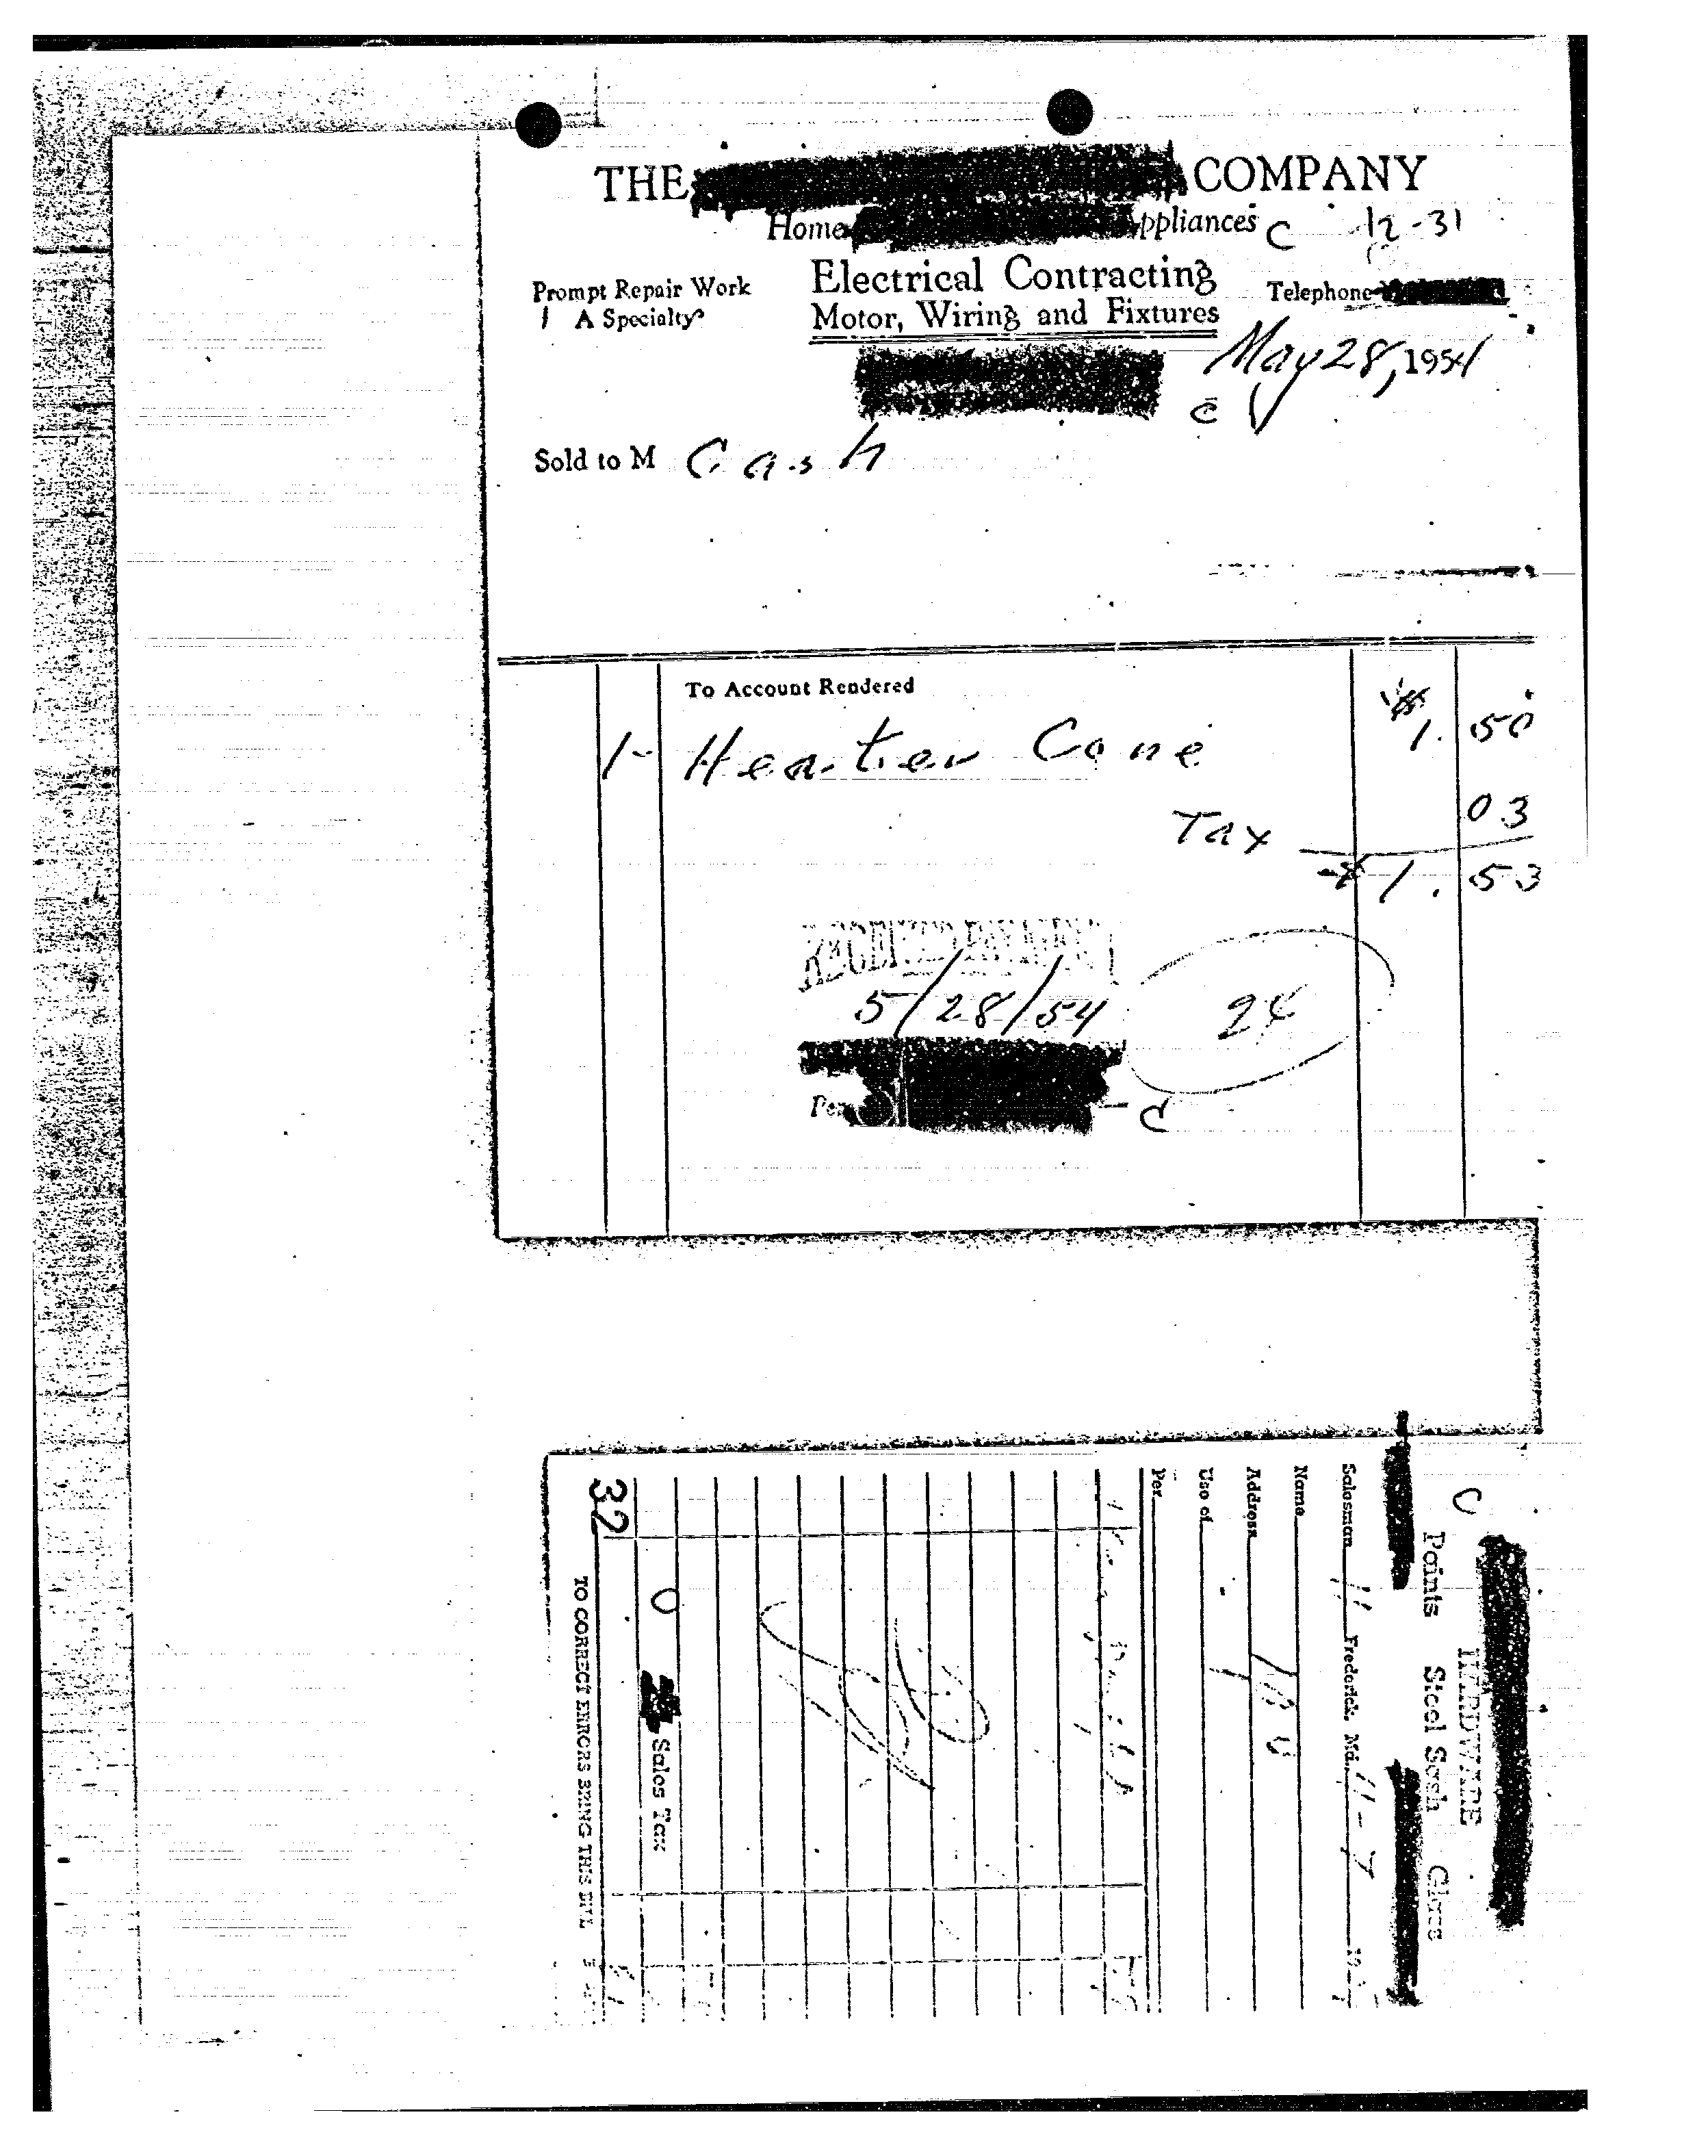 THE COMPANY
Home Appliances C 12-31
Prompt Repair Work Electrical Contracting Telephone
A Specialty Motor, Wiring and Fixtures
May 28, 1954
C
Sold to M Cash
To Account Rendered
1- Heater Cone $1.50
Tax .03
$1.53
RECEIVED PAYMENT
5/28/54
24
Per C
C
HARDWARE
Paints Steel Sash Glass
Salesman 11 Frederick, Md. 11-7
Name
Address
Use of
Per
Sales Tax
32 TO CORRECT ERRORS BRING THIS BILL